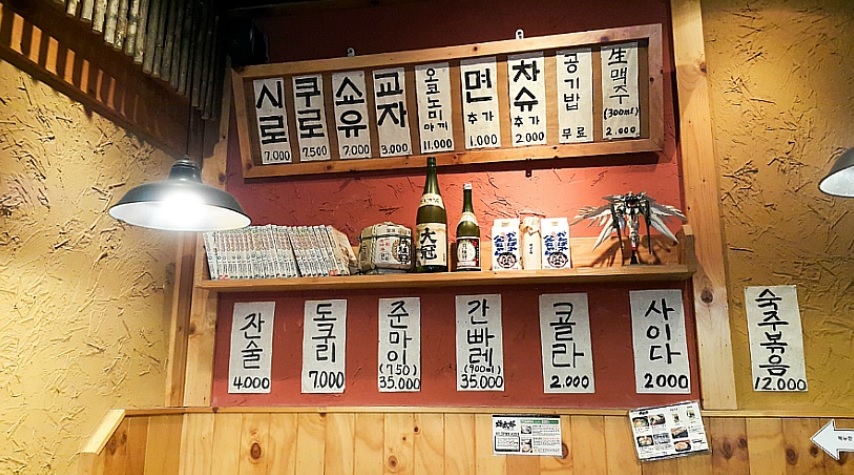 시로
7.000
쿠로
7.500
쇼유
7.000
교자
3.000
오코노미
야끼
11.000
면
추가
1.000
차슈
추가
2000
공기밥
무료
生맥주
(300ml)
2.000
大冠
잔술
4.000
도쿠리
7.000
준마이
(750)
35.000
간빠레
(900ml)
35.000
콜라
2.000
사이다
2000
숙주볶음
12.000